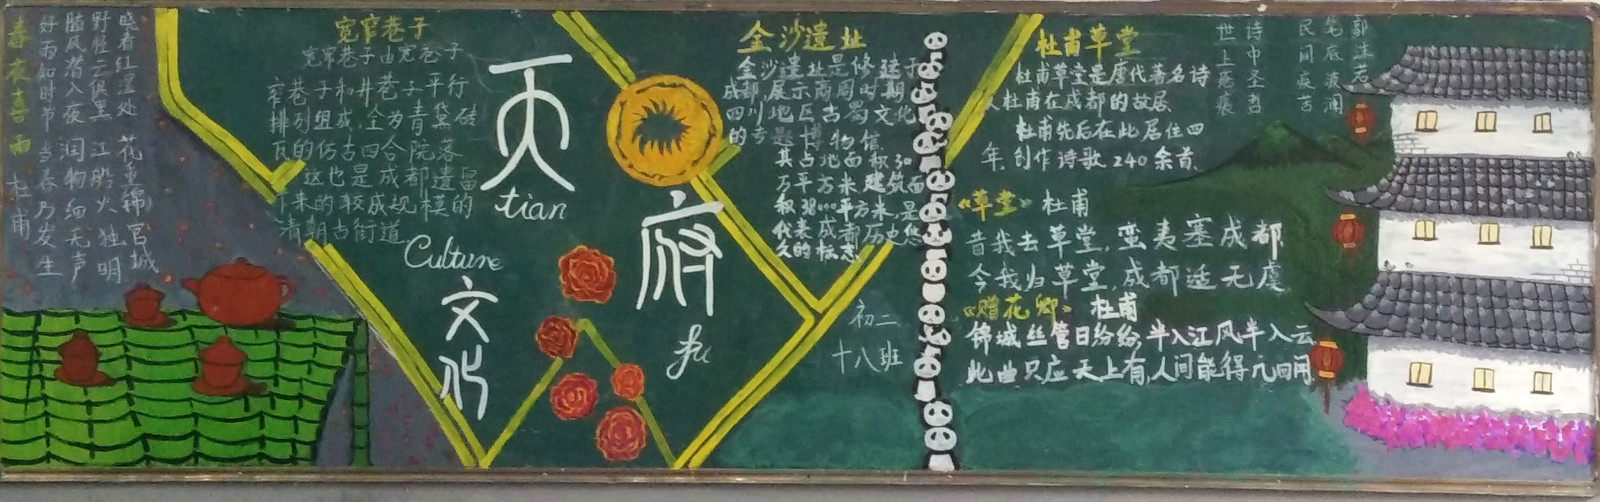 春夜喜雨 杜甫
好雨知时节 当春乃发生
随风潜入夜 润物细无声
野径云俱黑 江船火独明
晓看红湿处 花重锦官城
宽窄巷子
宽窄巷子由宽巷子
窄巷子和井巷子平行
排列组成,全为青黛砖
瓦的仿古四合院落
这也是成都遗留
下来的较成规模的
清朝古街道
天
tian
府
fu
Culture
文化
金沙遗址
金沙遗址是修建于
成都,展示商周时期
四川地区古蜀文化
的专题博物馆
其占地面积30
万平方米建筑面
积38…平方米,是
代表成都历史悠
久的标志
初二
十八班
杜甫草堂
杜甫草堂是唐代著名诗
人杜甫在成都的故居
杜甫先后在此居住四
年,创作诗歌240余首
世上疮痍
诗中圣哲
民间疾苦
笔底波澜
《草堂》 杜甫
昔我去草堂,蛮夷塞成都
今我归草堂,成都适无虞
《赠花卿》 杜甫
锦城丝管日纷纷,半入江风半入云
此曲只应天上有,人间能得几回闻